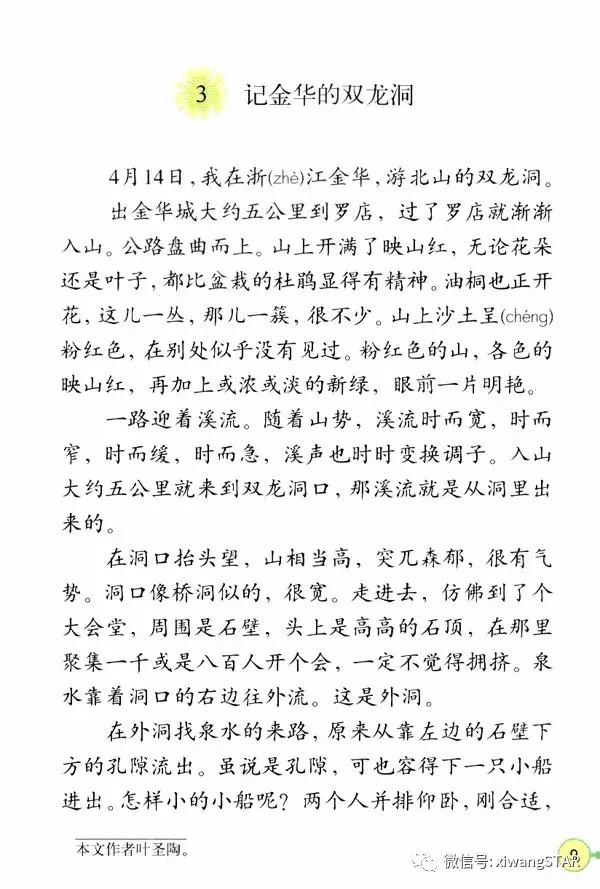 3 记金华的双龙洞
4月14日，我在浙(zhè)江金华，游北山的双龙洞。
出金华城大约五公里到罗店，过了罗店就渐渐
入山。公路盘曲而上。山上开满了映山红，无论花朵
还是叶子，都比盆栽的杜鹃显得有精神。油桐也正开
花，这儿一丛，那儿一簇，很不少。山上沙土呈(chéng)
粉红色，在别处似乎没有见过。粉红色的山，各色的
映山红，再加上或浓或淡的新绿，眼前一片明艳。
一路迎着溪流。随着山势，溪流时而宽，时而
窄，时而缓，时而急，溪声也时时变换调子。入山
大约五公里就来到双龙洞口，那溪流就是从洞里出
来的。
在洞口抬头望，山相当高，突兀森郁，很有气
势。洞口像桥洞似的，很宽。走进去，仿佛到了个
大会堂，周围是石壁，头上是高高的石顶，在那里
聚集一千或是八百人开个会，一定不觉得拥挤。泉
水靠着洞口的右边往外流。这是外洞。
在外洞找泉水的来路，原来从靠左边的石壁下
方的孔隙流出。虽说是孔隙，可也容得下一只小船
进出。怎样小的小船呢？两个人并排仰卧，刚合适，
本文作者叶圣陶。
微信号: xiwangSTAR